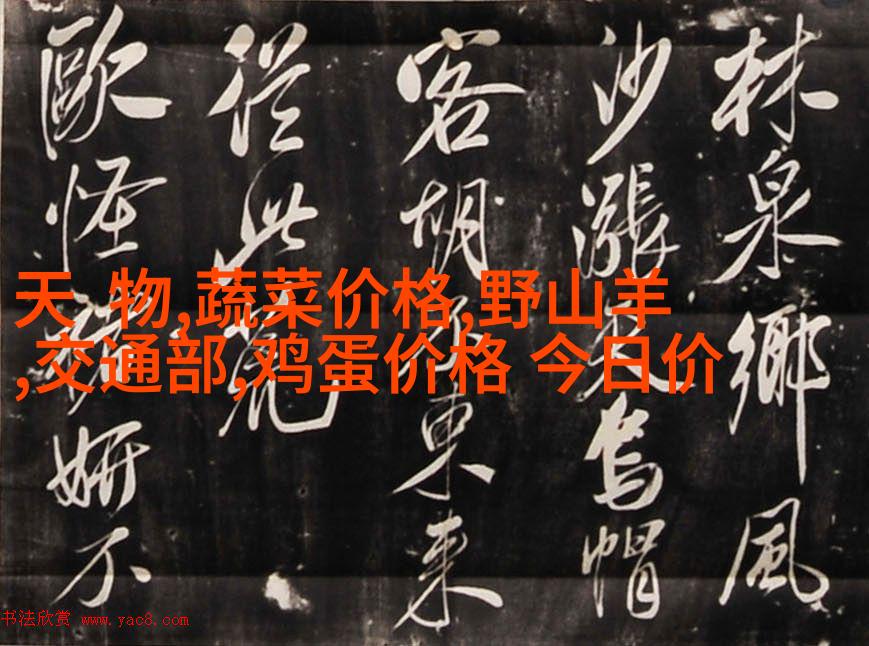 林泉鄉風
沙漲烏帽
客胡東來
從此
歐怪妍不
天 物,蔬菜价格,野山羊
,交通部,鸡蛋价格 今日价
书法欣赏 www.yac8.com